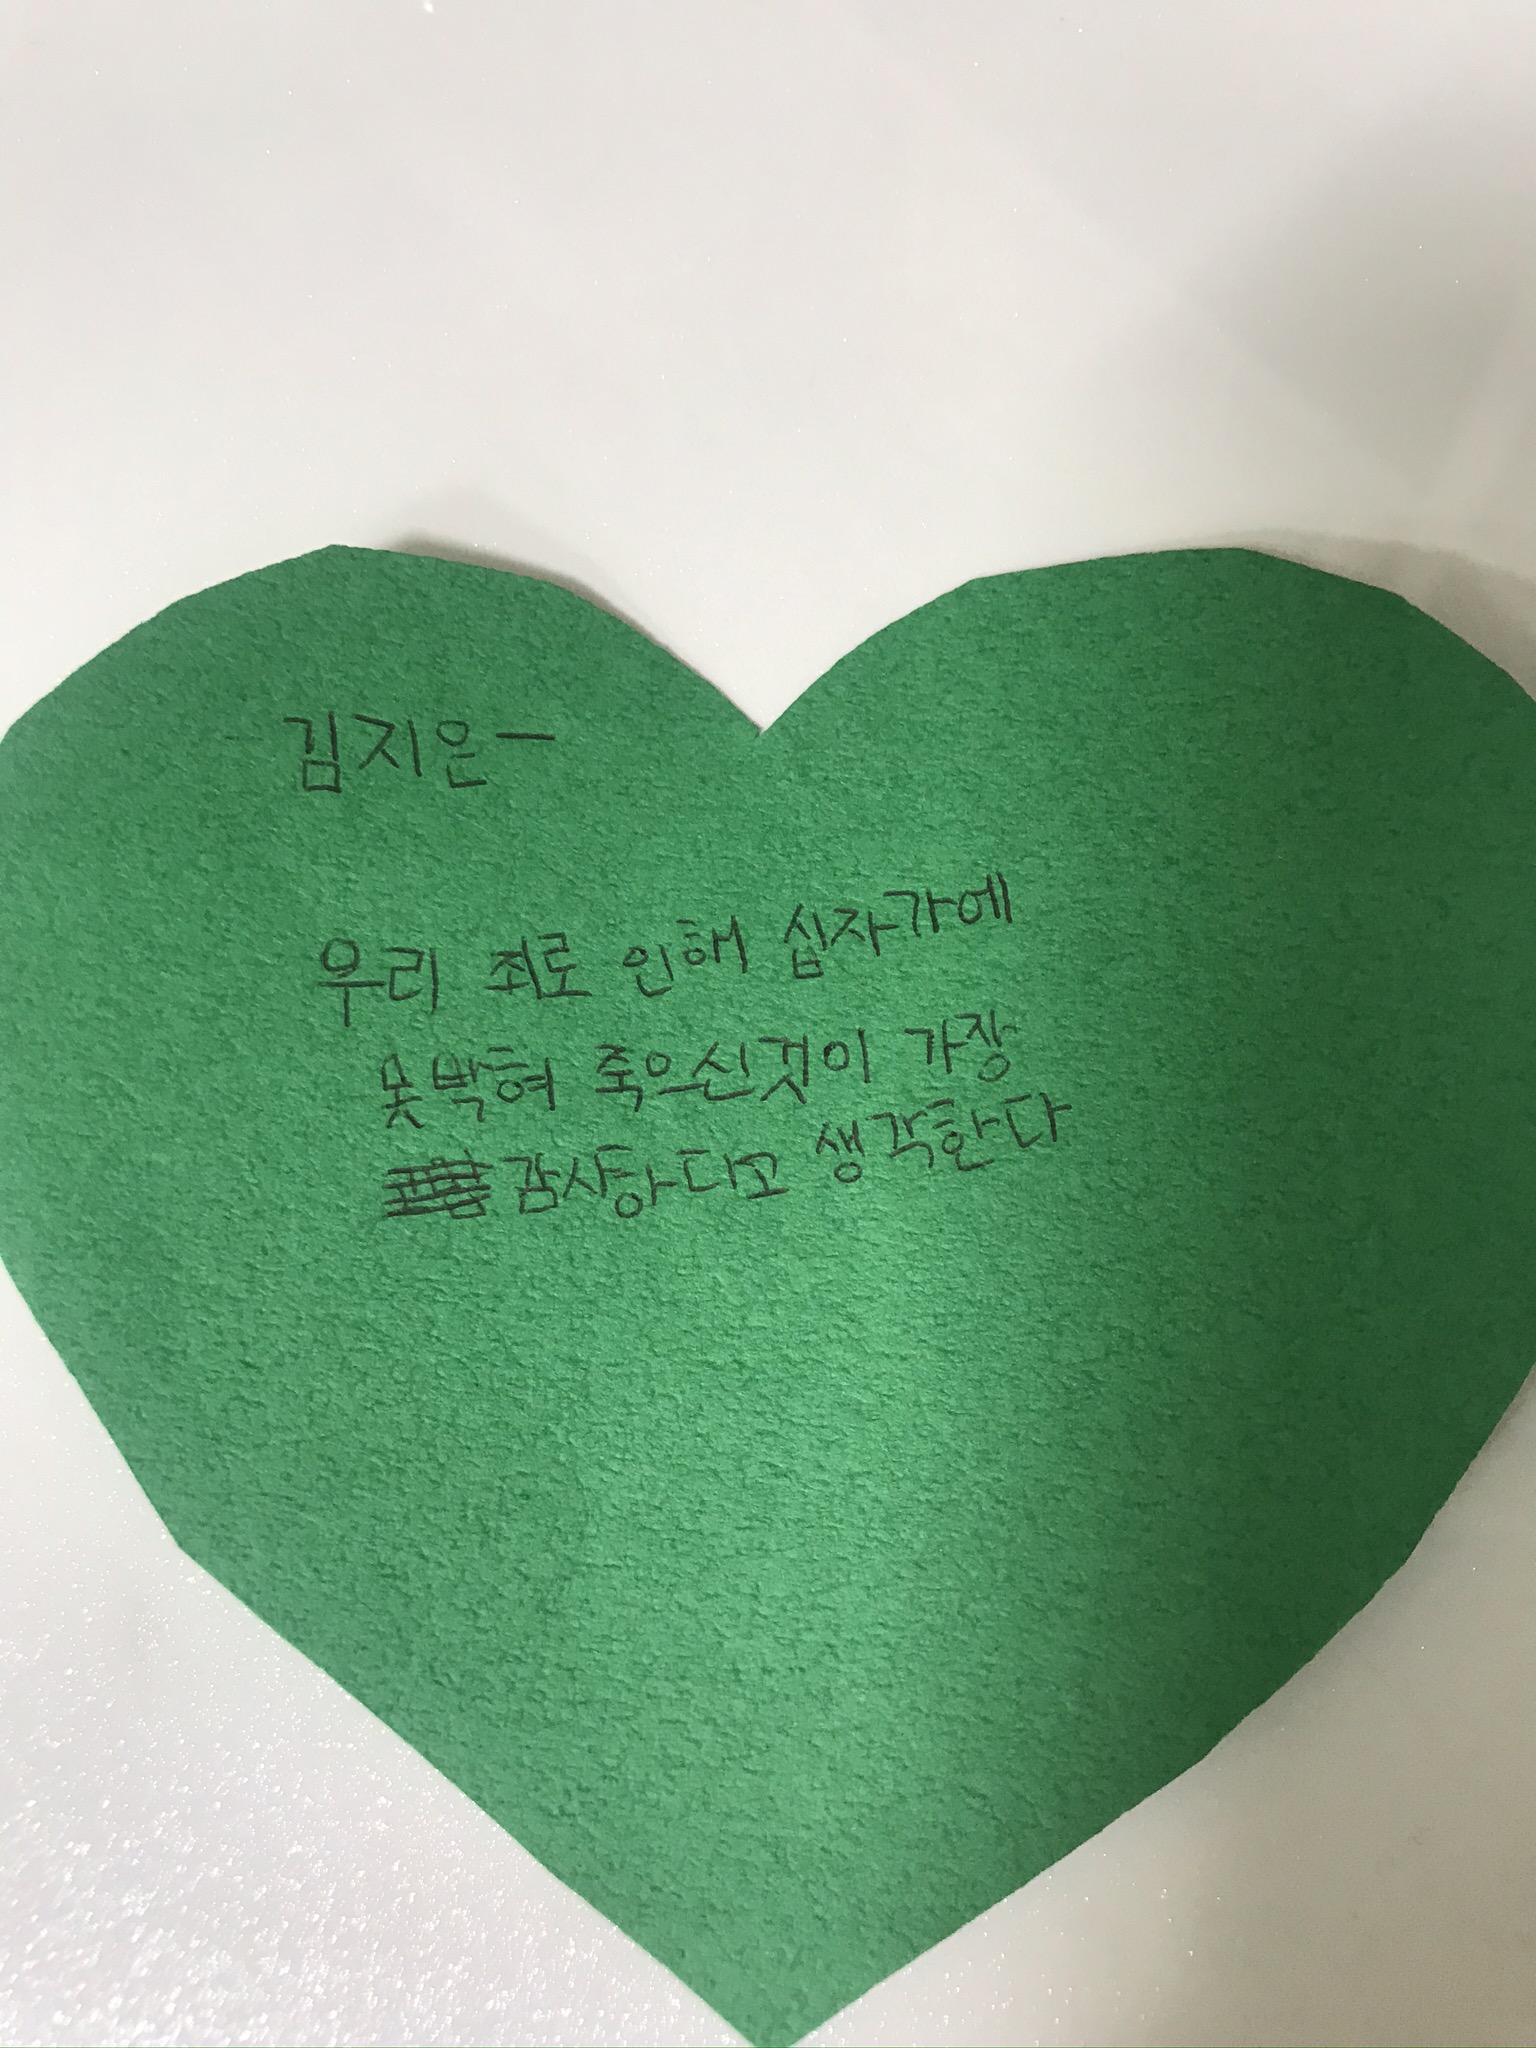 김지은-
우리 죄로 인해 십자가에
못박혀 죽으신것이 가장
감사하다고 생각한다